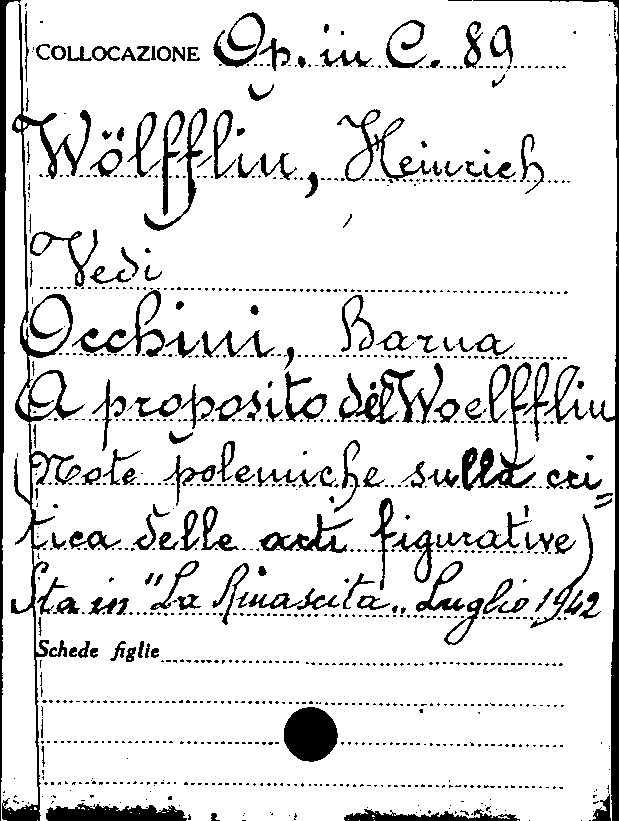 COLLOCAZIONE Op. in C. 89
Wölfflin, Heinrich
Vedi
Occhini, Barna
A proposito del Woelfflin
(Note polemiche sulla cri=
tica delle arti figurative)
Sta in "La Rinascita„ Luglio 1942
Schede figlie